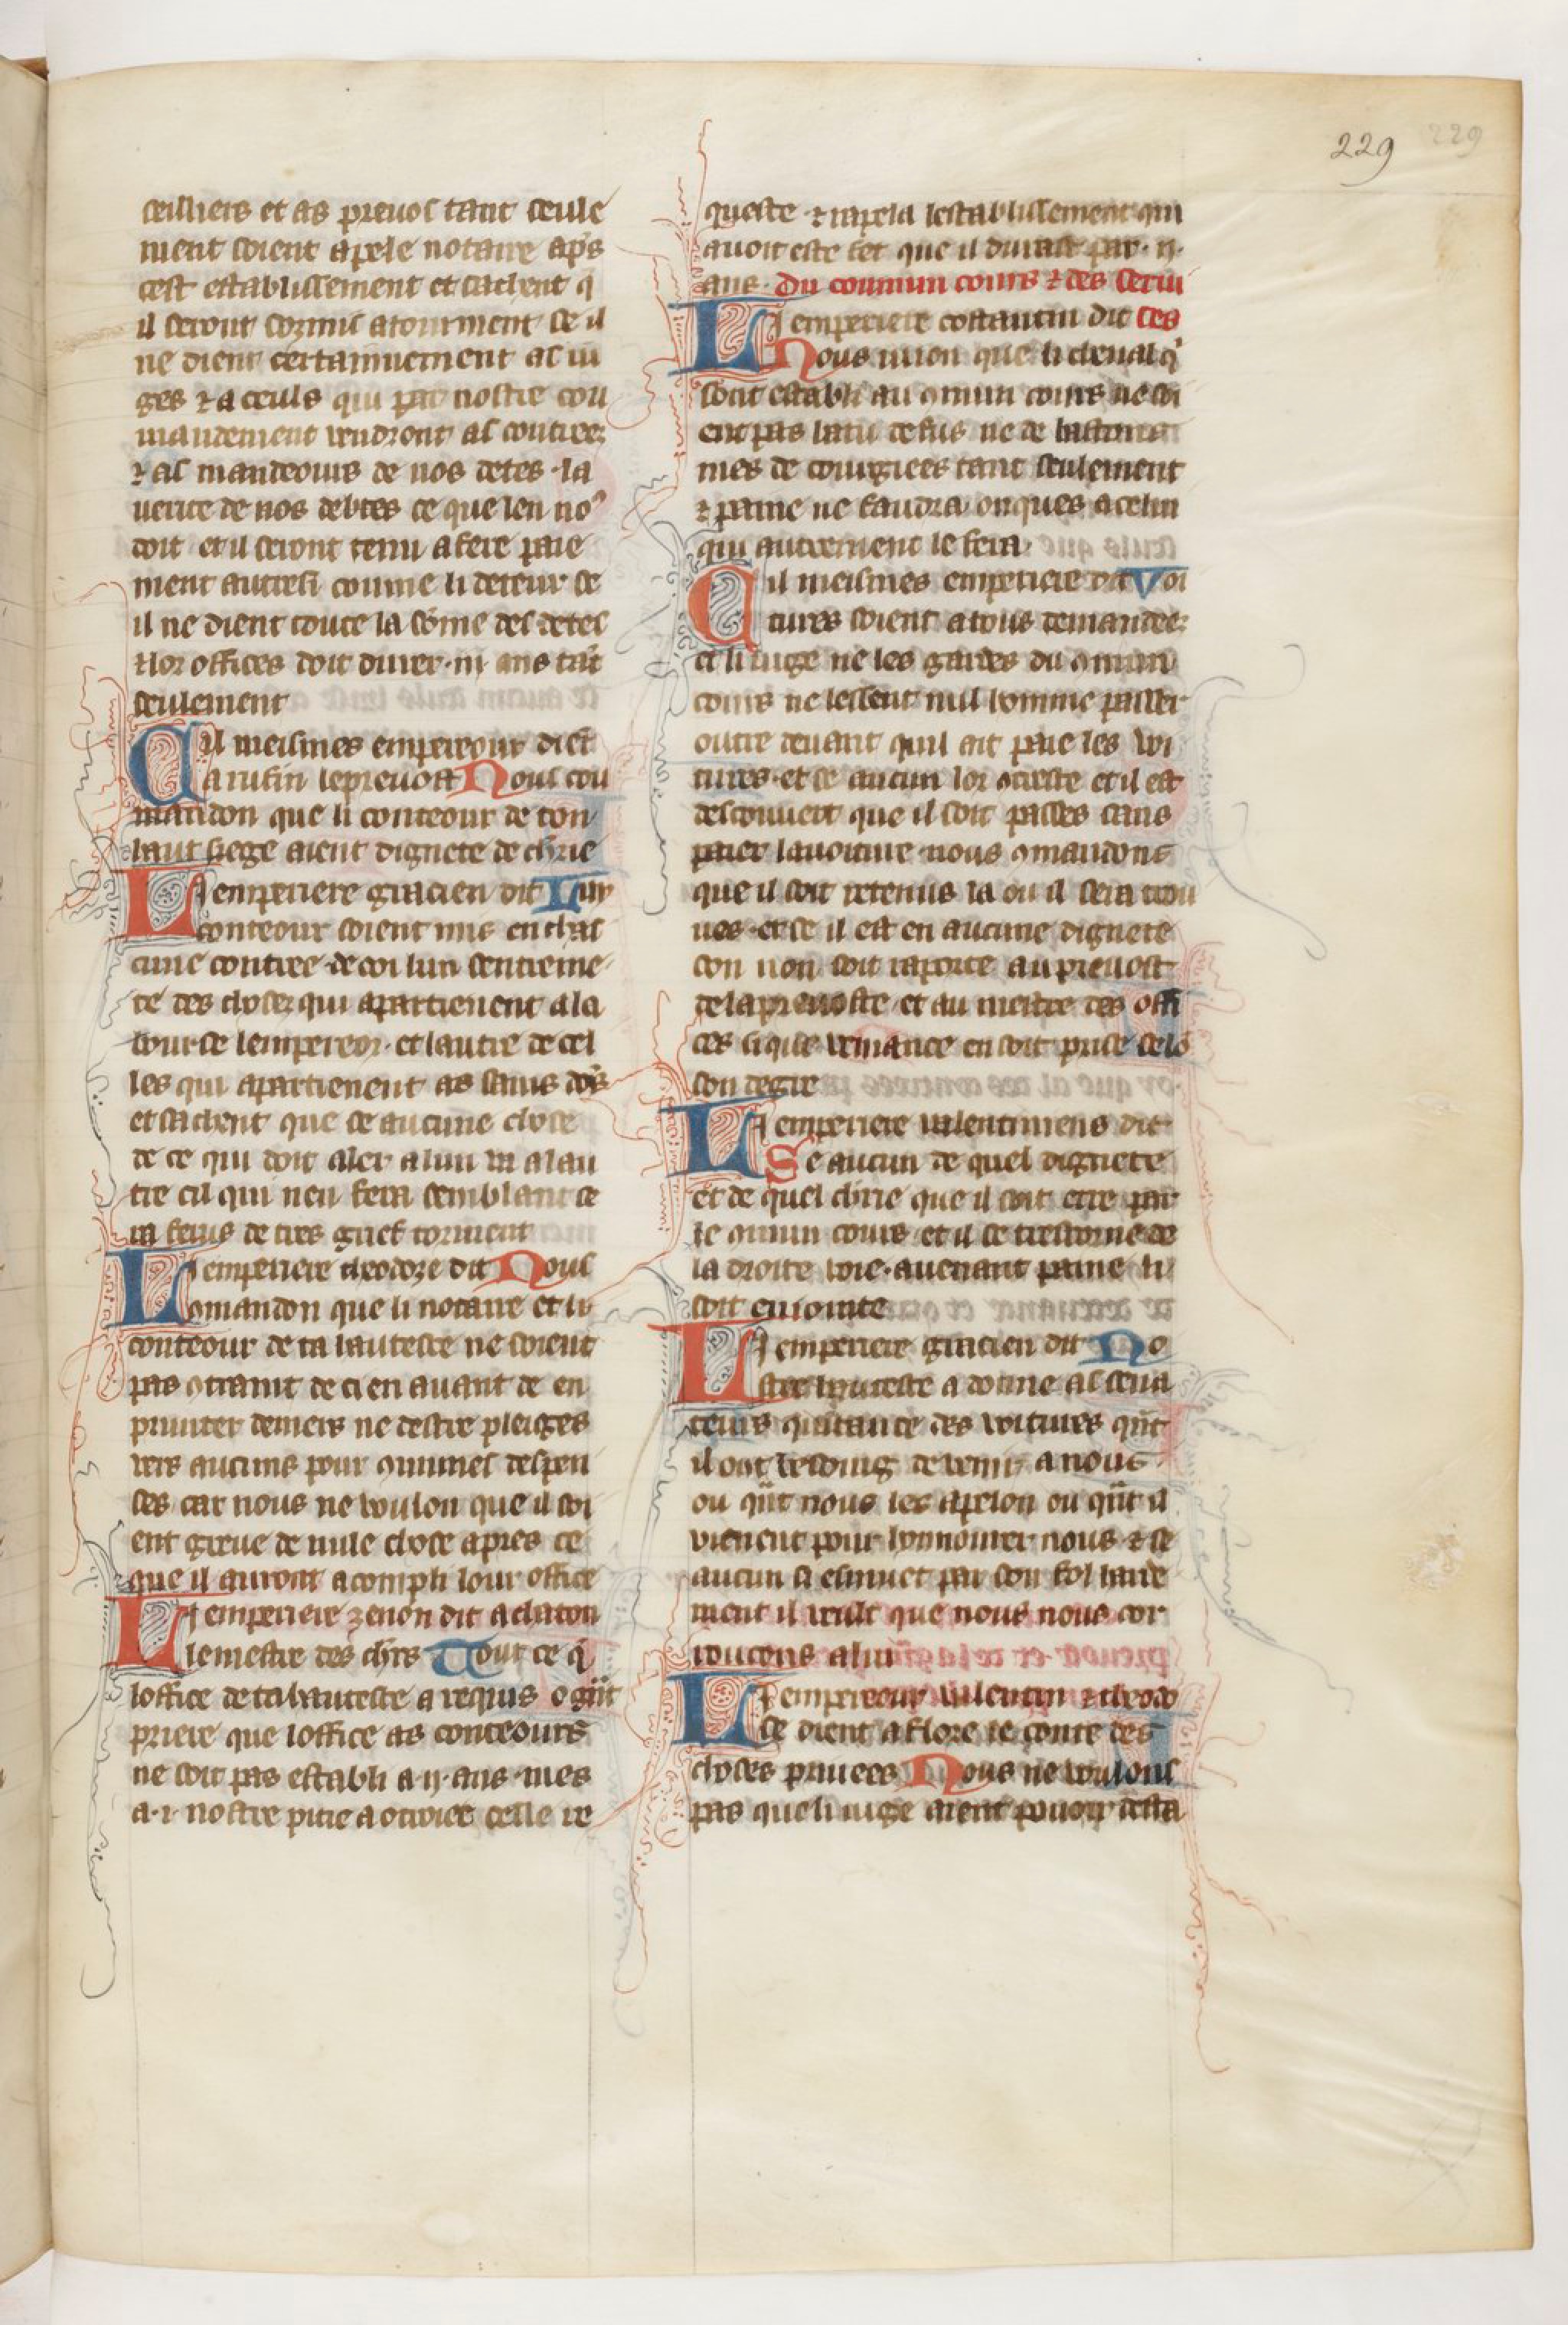 229
ceilliers et as prevos tant seule
ment soient apele notaire apͥs
cest establissement et sachent q̄
il seront sozmis atourment se il
ne dient certainnement as iu
ges ⁊ a ceuls qui par nostre cou
mandement vendront as contrees
⁊ as mandeours de nos detes · la
verite de nos debtes ce que len noꝰ
doit et il seront tenu a fere paie
ment autresi coume li deteur se
il ne dient toute la sōme des detes
⁊ lor offices doit durer · iii · ans tāt
seulement
Cil meismes empereour dist
a rufin le prevost Nous cou
mandon que li conteour de ton
haut siege aient dignete de chr̄ie
Li emperiere gracien dit Luy
conteour soient mis en chas
cune contree · de coi lun sentreme
te des choses qui apartienent a la
bourse lempereor · et lautre de cel
les qui apartienent as sains dōs
et sachent que se aucune chose
de ce qui doit aler a lun va a lau
tre cil qui neu fera semblant se
ra ferus de tres grief torment
Li emperiere theodoze dit Nous
comandon que li notaire et li
conteour de ta hautesce ne soient
pas ꝯtraint de ci en avant de en
prunter deniers ne destre pleiges
vers aucuns pour ꝯmunes despen
ses car nous ne voulon que il soi
ent greve de nule chose apres ce
que il auront acompli lour office
Li emperiere zenon dit a chaton
le mestre des chr̄s Tout ce q̄
loffice de ta hautesce a requis
priere que loffice as conteours
ne soit pas establi a · ii · ans · mes
a · i · nostre pitie a otroiee celle re
queste · ⁊ rapela lestablissement qui
avoit este fet que il durast par · ii ·
ans · Du coumun cours ⁊ des serui
Li emperiere costantin dit ces
Nous uuon que li cheval qͥ
sont establi au ꝯmun cours ne soi
ent pas batu de fus ne de bastons
mes de courgiees tant seulement
⁊ paine ne faudra onques a celui
qui autrement le fera
Cil meismes emperiere dit Voi
tures soient a tous demandees
et li iuge ne les gardes du ꝯmun
cours ne lessent nul homme passer
outre devant quil ait paie les voi
tures · et se aucun lor ꝯtreste et il est
descouvert que il soit passes sans
paier la voiture nous ꝯmandons
que il soit retenus la ou il sera trou
ves · et se il est en aucune dignete
son non soit raporte au prevost
de la prevoste et au mestre des offi
ces si que veniance en soit prise selō
son degre
Li emperiere valentiniens dit
Se aucun de quel dignete
et de quel chr̄ie que il soit erre par
le ꝯmun cours et il se trestorne de
la droite voie · avenant paine li
soit eniointe
Li emperiere gracien dit No
stre hautesce a donne as sena
teurs quitance des voitures q̄nt
il ont besoing de venir a nous ·
ou q̄nt nous les apelon ou q̄nt il
vienent pour honnourer nous ⁊ se
aucun si esmuet par son fol harde
ment il veult que nous nous cor
roucons a lui
Li empereour valentin ⁊ theodo
se dient a flore le conte des
choses privees Nous ne voulons
pas que li iuge aient pouoir desta